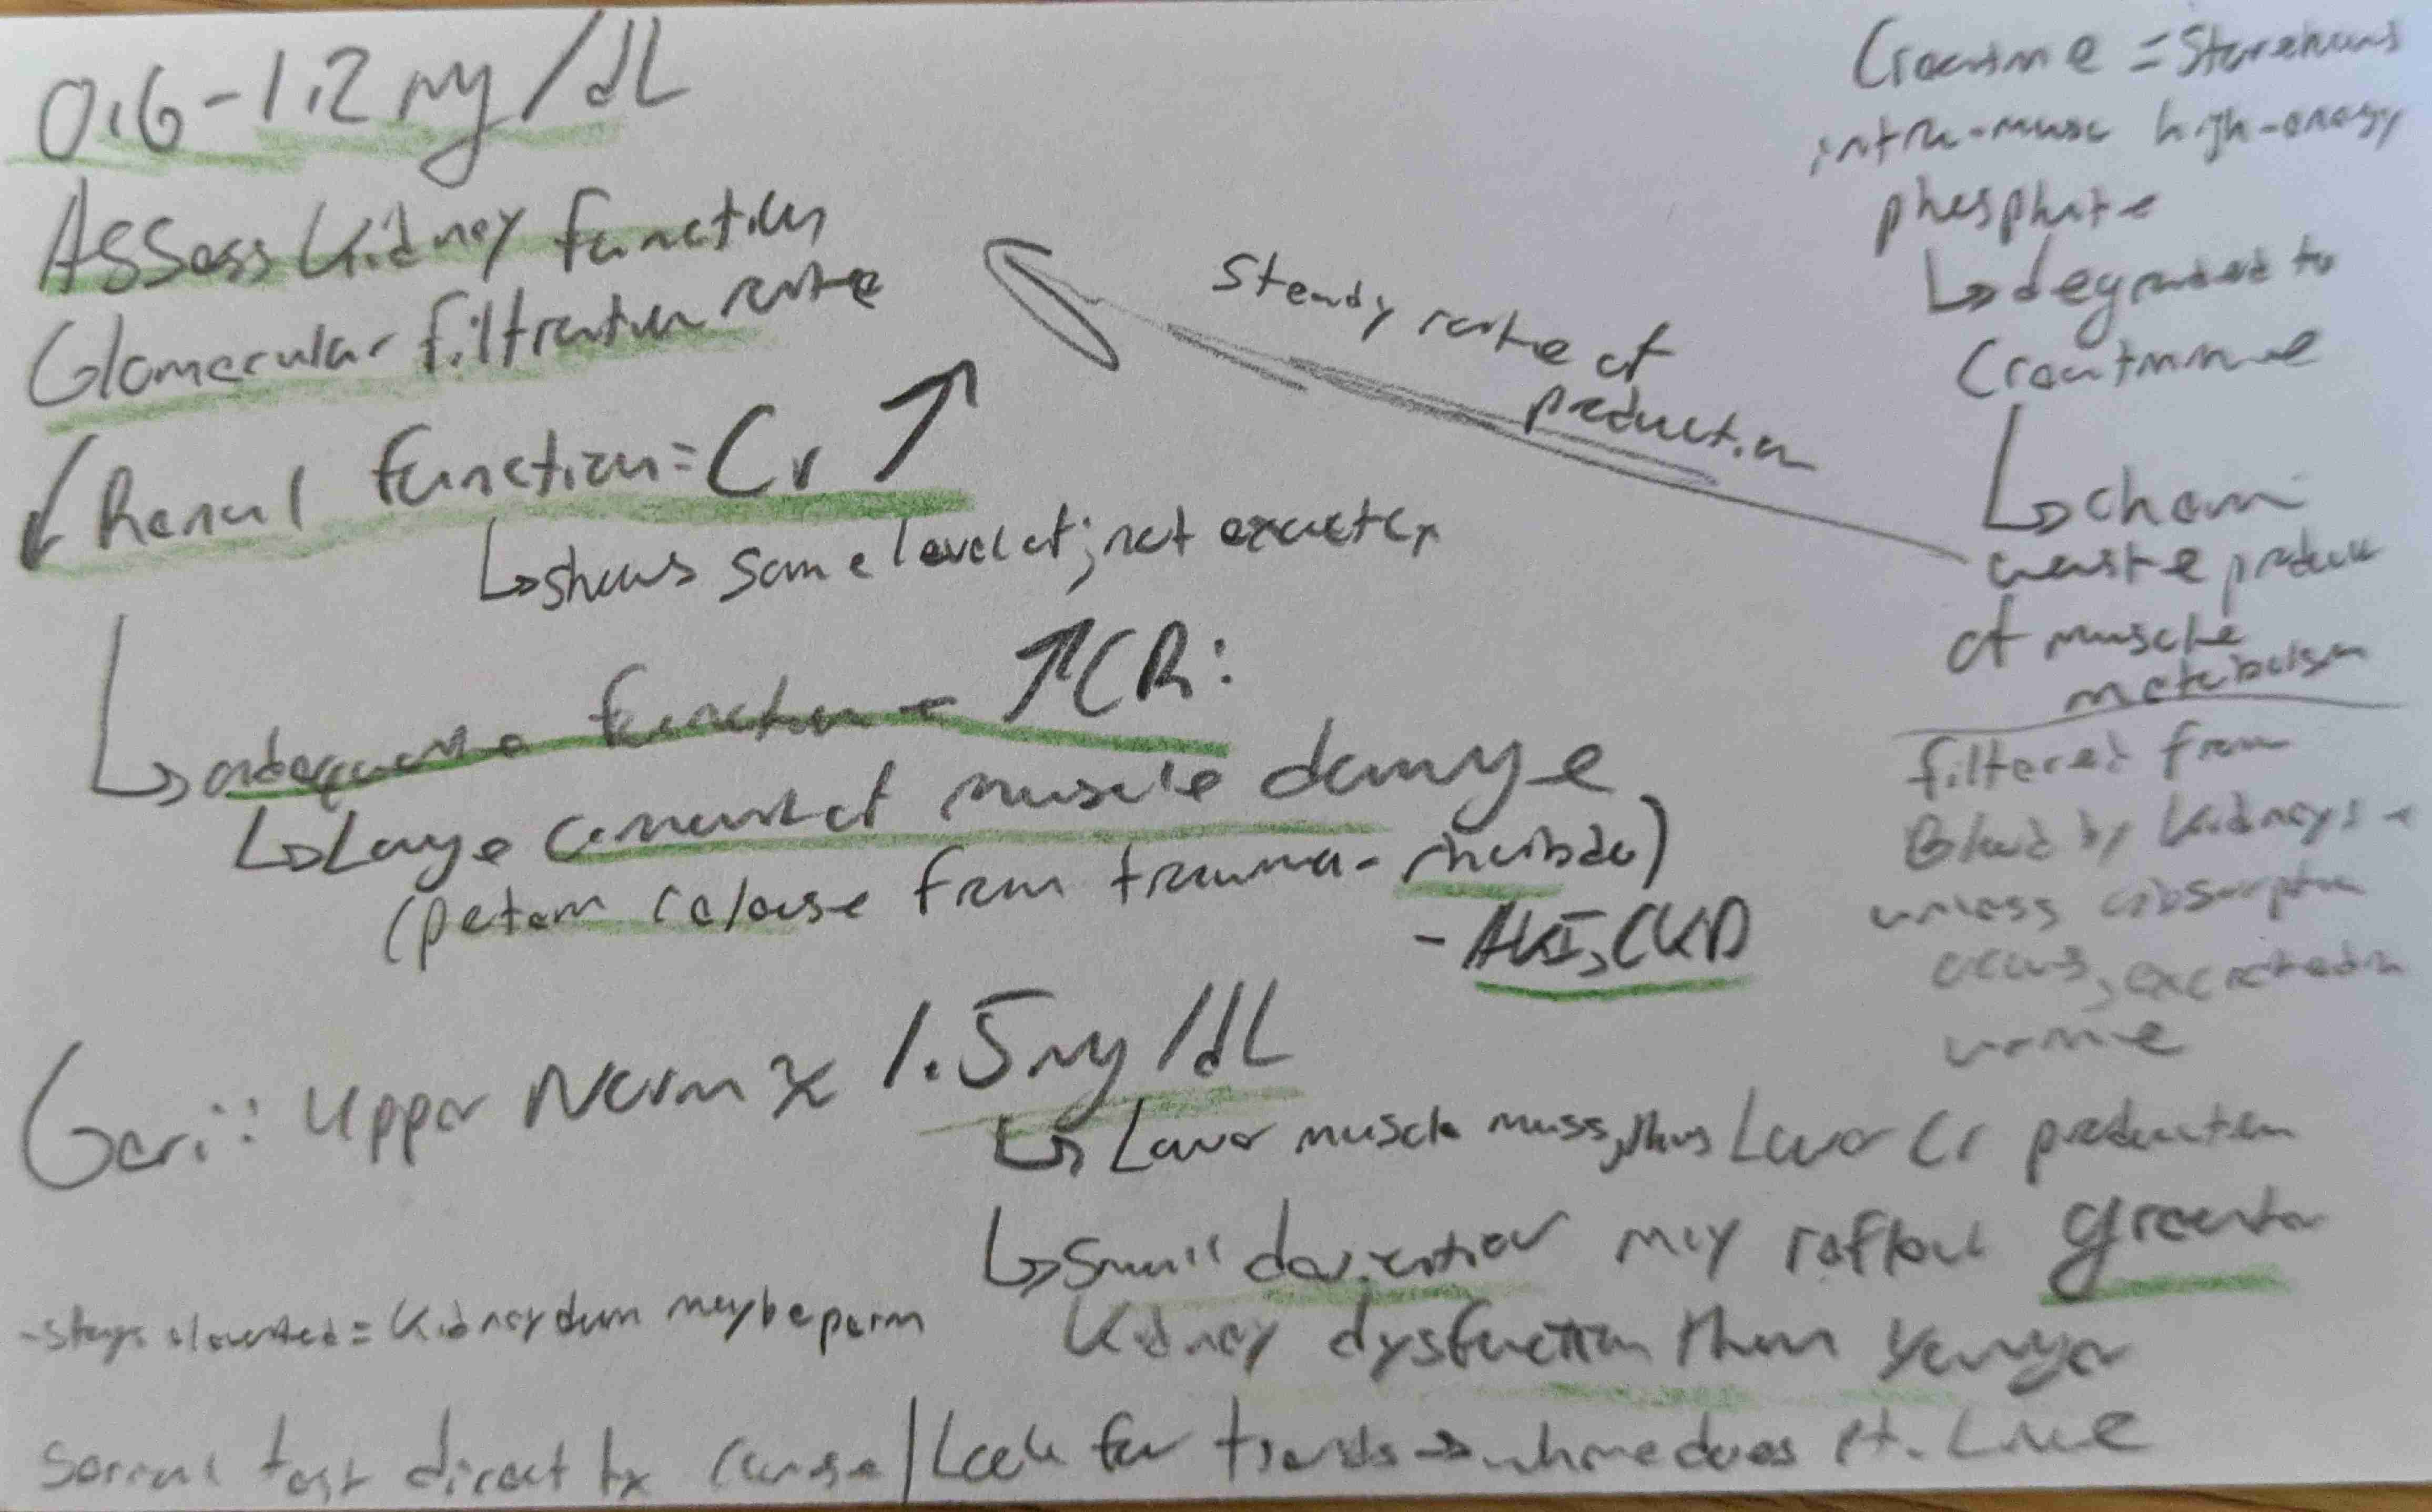 0.6-1.2 mg/dL
Assess Kidney function
Glomerular filtration rate
↓ Renal function = Cr ↑
↳ shows some level of; not exact
↳ adequate function = ↑ CR:
↳ Large amount of muscle damage
(potent release from trauma - rhabdo)
- AKI, CKD
Geri: Upper Norm x 1.5 mg/dL
↳ Lower muscle mass, thus Lower Cr production
↳ Small deviation may reflect greater
Kidney dysfunction than younger
- stays elevated = Kidney dam may be perm
Serial test direct tx cause / Look for trends → where does pt. Live
Steady rate of
production
Creatine = Storehouse
intra-musc high-energy
phosphate
↳ degraded to
Creatinine
↳ chem
waste produc
of muscle
metabolism
filtered from
Blood by Kidneys -
unless absorption
occurs, excreted in
urine